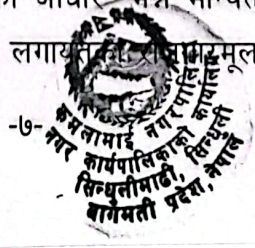 लगायतका रोजगारमूल
-७-
कमलामाई नगरपालिका
नगर कार्यपालिकाको कार्यालय
सिन्धुलीमाढी, सिन्धुली
बागमती प्रदेश, नेपाल